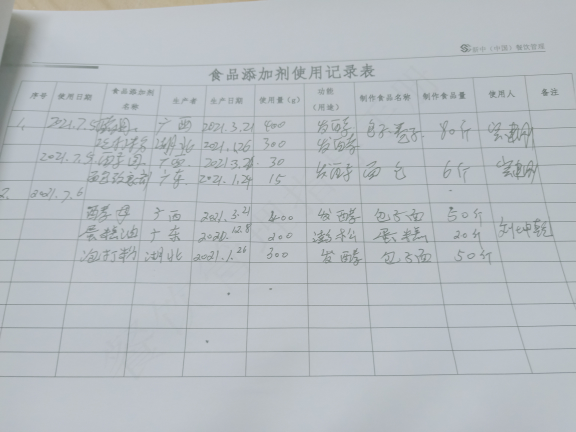 (中国)餐饮管理
食品添加剂使用记录表
序号 使用日期 食品添加剂名称 生产者 生产日期 使用量(g) 功能(用途) 制作食品名称 制作食品量 使用人 备注
1、 2021.7.5 酵母 广西 2021.3.21 400 发酵 包子 80斤
湖北 2021.1.26 300 发酵
2021.7.5 酵母 广西 30 发酵 面包 6斤
广东 2021.1.24 15
2. 2021.7.6
酵母 广西 2021.3.21 400 发酵 包子面 50斤
蛋糕油 广东 12.8 200 蓬松 蛋糕 20斤
泡打粉 湖北 2021.1.26 300 发酵 包子面 50斤